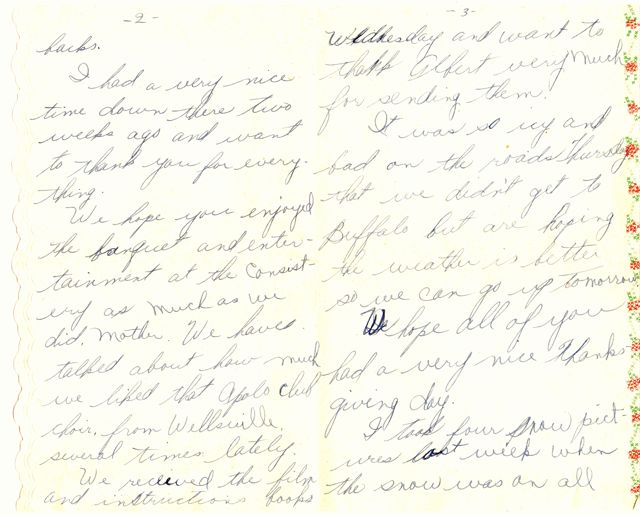 -2-
backs.
I had a very nice
time down there two
weeks ago and want
to thank you for every-
thing.
We hope you enjoyed
the banquet and enter-
tainment at the Consist-
ery as much as we
did, Mother. We have
talked about how much
we liked that Apolo Club
choir, from Wellsville,
several times lately.
We recieved the film
and instructions books
-3-
Wednesday and want to
thank Albert very much
for sending them.
It was so icy and
bad on the roads Thursday
that we didn't get to
Buffalo but are hoping
the weather is better
so we can go up tomorrow
We hope all of you
had a very nice Thanks-
giving day.
I took four snow pict-
ures last week when
the snow was on all